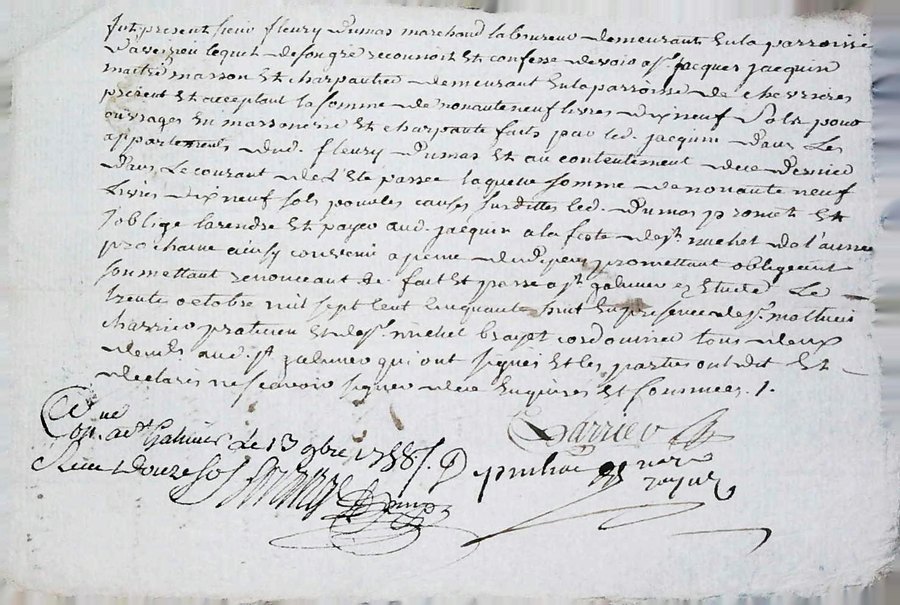 fut present sieur fleury Dumas marchand laboureur demeurant en la parroisse
D'aveizieu lequel de son gré reconnoit et confesse devoir a sr jacques jacquin
maitre masson et charpantier demeurant en la parroisse de chevrieres
present et acceptant la somme de nonante neuf livres dix neuf sols pour
ouvrages en massonerie et charpante faits par led. jacquin dans les
appartements dud. fleury Dumas et au contentement de ce dernier
dans le courant de l'Eté passée laquelle somme de nonante neuf
livres dix neuf sols pour les causes surdittes led. Dumas promet et
s'oblige la rendre et payer aud. jacquin a la feste de st michel de l'année
prochaine ainsy convenu a peine de promettant obligeant
soumettant renonceant &c. fait et passé a st galmier es Etude le
trente octobre mil sept cent cinquante huit en presence de sr
Charrier praticien et de sr michel brayet cordonnier tous deux
dem. aud. st galmier qui ont signés et les parties ont dit et
declarés ne scavoir signer de ce enquises et sommées .1.
Charrier
Cone a st Galmier le 13 9bre 1758
Recu douze sols